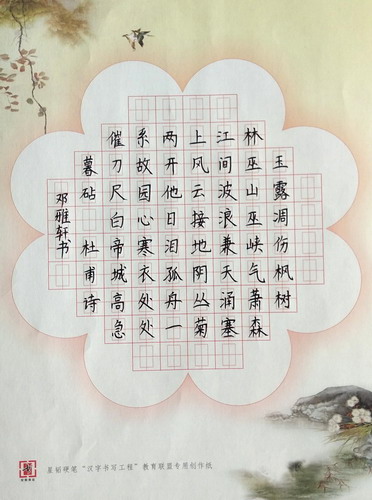 玉露凋伤枫树
林巫山巫峡气萧森
江间波浪兼天涌塞
上风云接地阴丛菊
两开他日泪孤舟一
系故园心寒衣处处
催刀尺白帝城高急
暮砧 杜甫诗
邓雅轩书
星韬硬笔“汉字书写工程”教育联盟专用创作纸